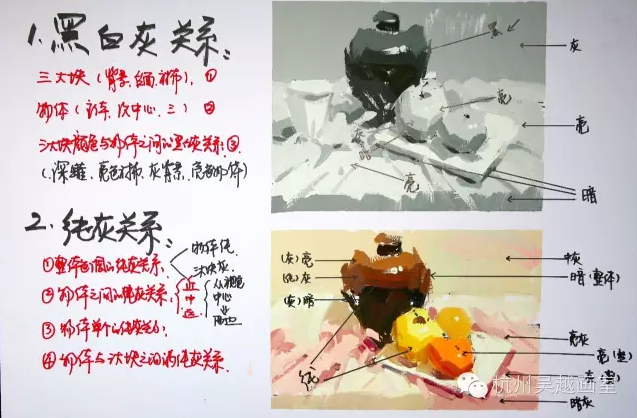 1.黑白灰关系:
三大块(背景、台面、衬布)①
物体(主体、次中心、三)②
三大块颜色与物体之间的黑白灰关系③
(深罐、亮色衬布、灰背景、亮色的物体)
黑
灰
亮
亮
亮
暗
2.纯灰关系:
①整体画面的纯灰关系
物体纯
三大块灰
②物体之间的纯灰关系
近
中
远
从视觉
中心
两边
③物体单个的纯灰关系
④物体与三大块之间的纯灰关系
(灰)亮
(纯)灰
(灰)暗
纯
中灰
暗(整体)
亮灰
亮(整)
暗灰
杭州吴越画室